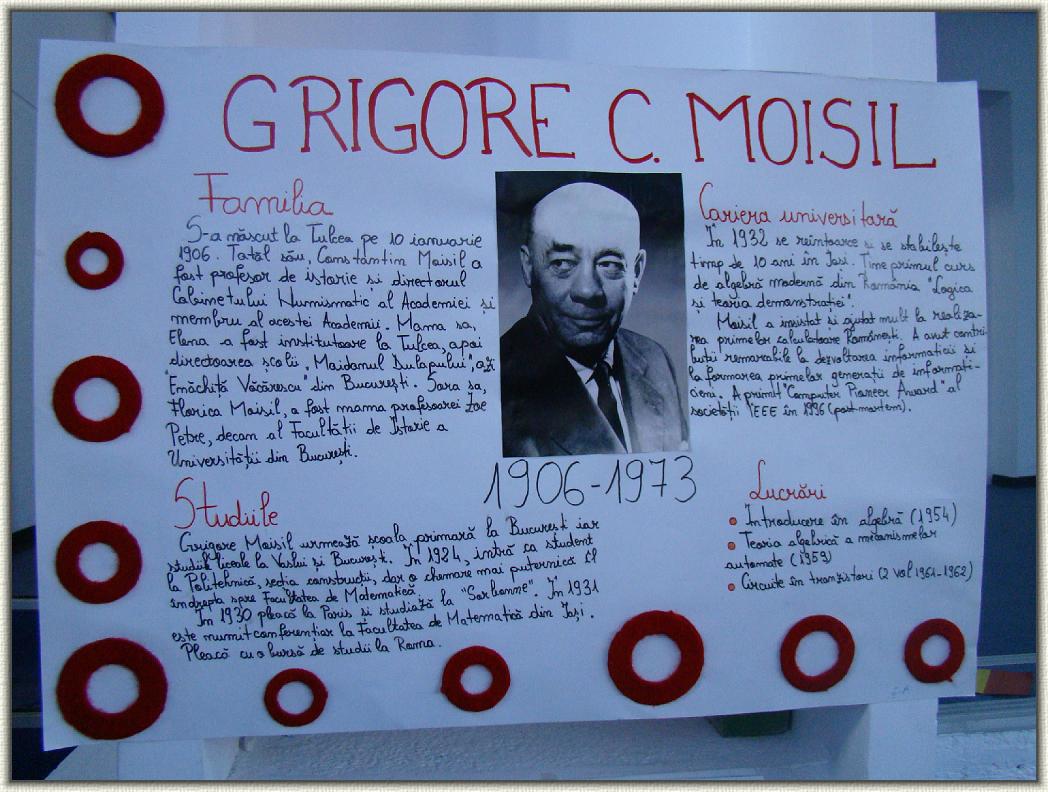 GRIGORE C. MOISIL
Familia
S-a născut la Tulcea pe 10 ianuarie
1906. Tatăl său, Constantin Moisil a
fost profesor de istorie si directorul
Cabinetului Numismatic al Academiei și
membru al acestei Academii. Mama sa,
Elena a fost institutoare la Tulcea, apoi
directoarea școlii „Maidanul Dulapului", azi
"Enăchiță Văcărescu" din București. Sora sa,
Florica Moisil, a fost mama profesoarei Zoe
Petre, decan al Facultății de Istorie a
Universității din București.
Studiile
Grigore Moisil urmează școala primară la București iar
studiile liceale la Vaslui și București. În 1924, intră ca student
la Politehnică, secția construcții, dar o chemare mai puternică îl
îndrepta spre Facultatea de Matematică.
În 1930 pleacă la Paris si studiază la "Sorbonne". În 1931
este numit conferențiar la Facultatea de Matematică din Iași.
Pleacă cu o bursă de studii la Roma.
1906-1973
Cariera universitară
În 1932 se reîntoarce și se stabilește
timp de 10 ani în Iasi. Ține primul curs
de algebră modernă din România "Logica
și teoria demonstrației".
Moisil a insistat si ajutat mult la realiza-
rea primelor calculatoare Românești. A avut contri-
buții remarcabile la dezvoltarea informaticii si
la formarea primelor generatii de informati-
cieni. A primit "Computer Pioneer Award" al
societății IEEE în 1996 (post-mortem).
Lucrări
Introducere în algebră (1954)
Teoria algebrică a mecanismelor
automate (1959)
Circuite în tranzistori (2 vol 1961-1962)